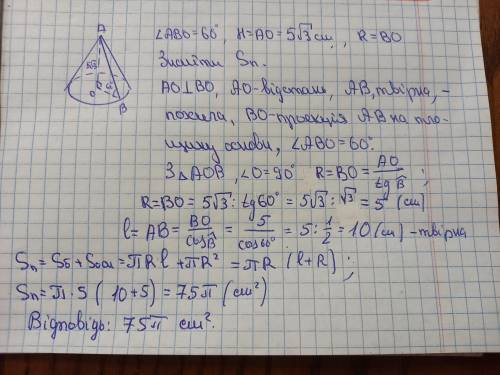 A
5√3
O
R
60°
B
∠ABO=60°, H=AO=5√3 см, R=BO
Знайти Sп.
AO⊥BO, AO-відстань, AB, твірна, -
похила, BO-проекція AB на пло-
щину основи, ∠ABO=60°.
З △AOB, ∠O=90° R=BO= AO/tg B̂ ;
R=BO= 5√3 : tg60° = 5√3 : √3 = 5 (см)
l=AB= BO/cosB̂ = 5/cos60° = 5 : 1/2 = 10 (см) -твірна
Sп = Sб + Sосн = πRl + πR² = πR (l+R) ;
Sп= π·5 ( 10+5) = 75π (см²)
Відповідь: 75π см².